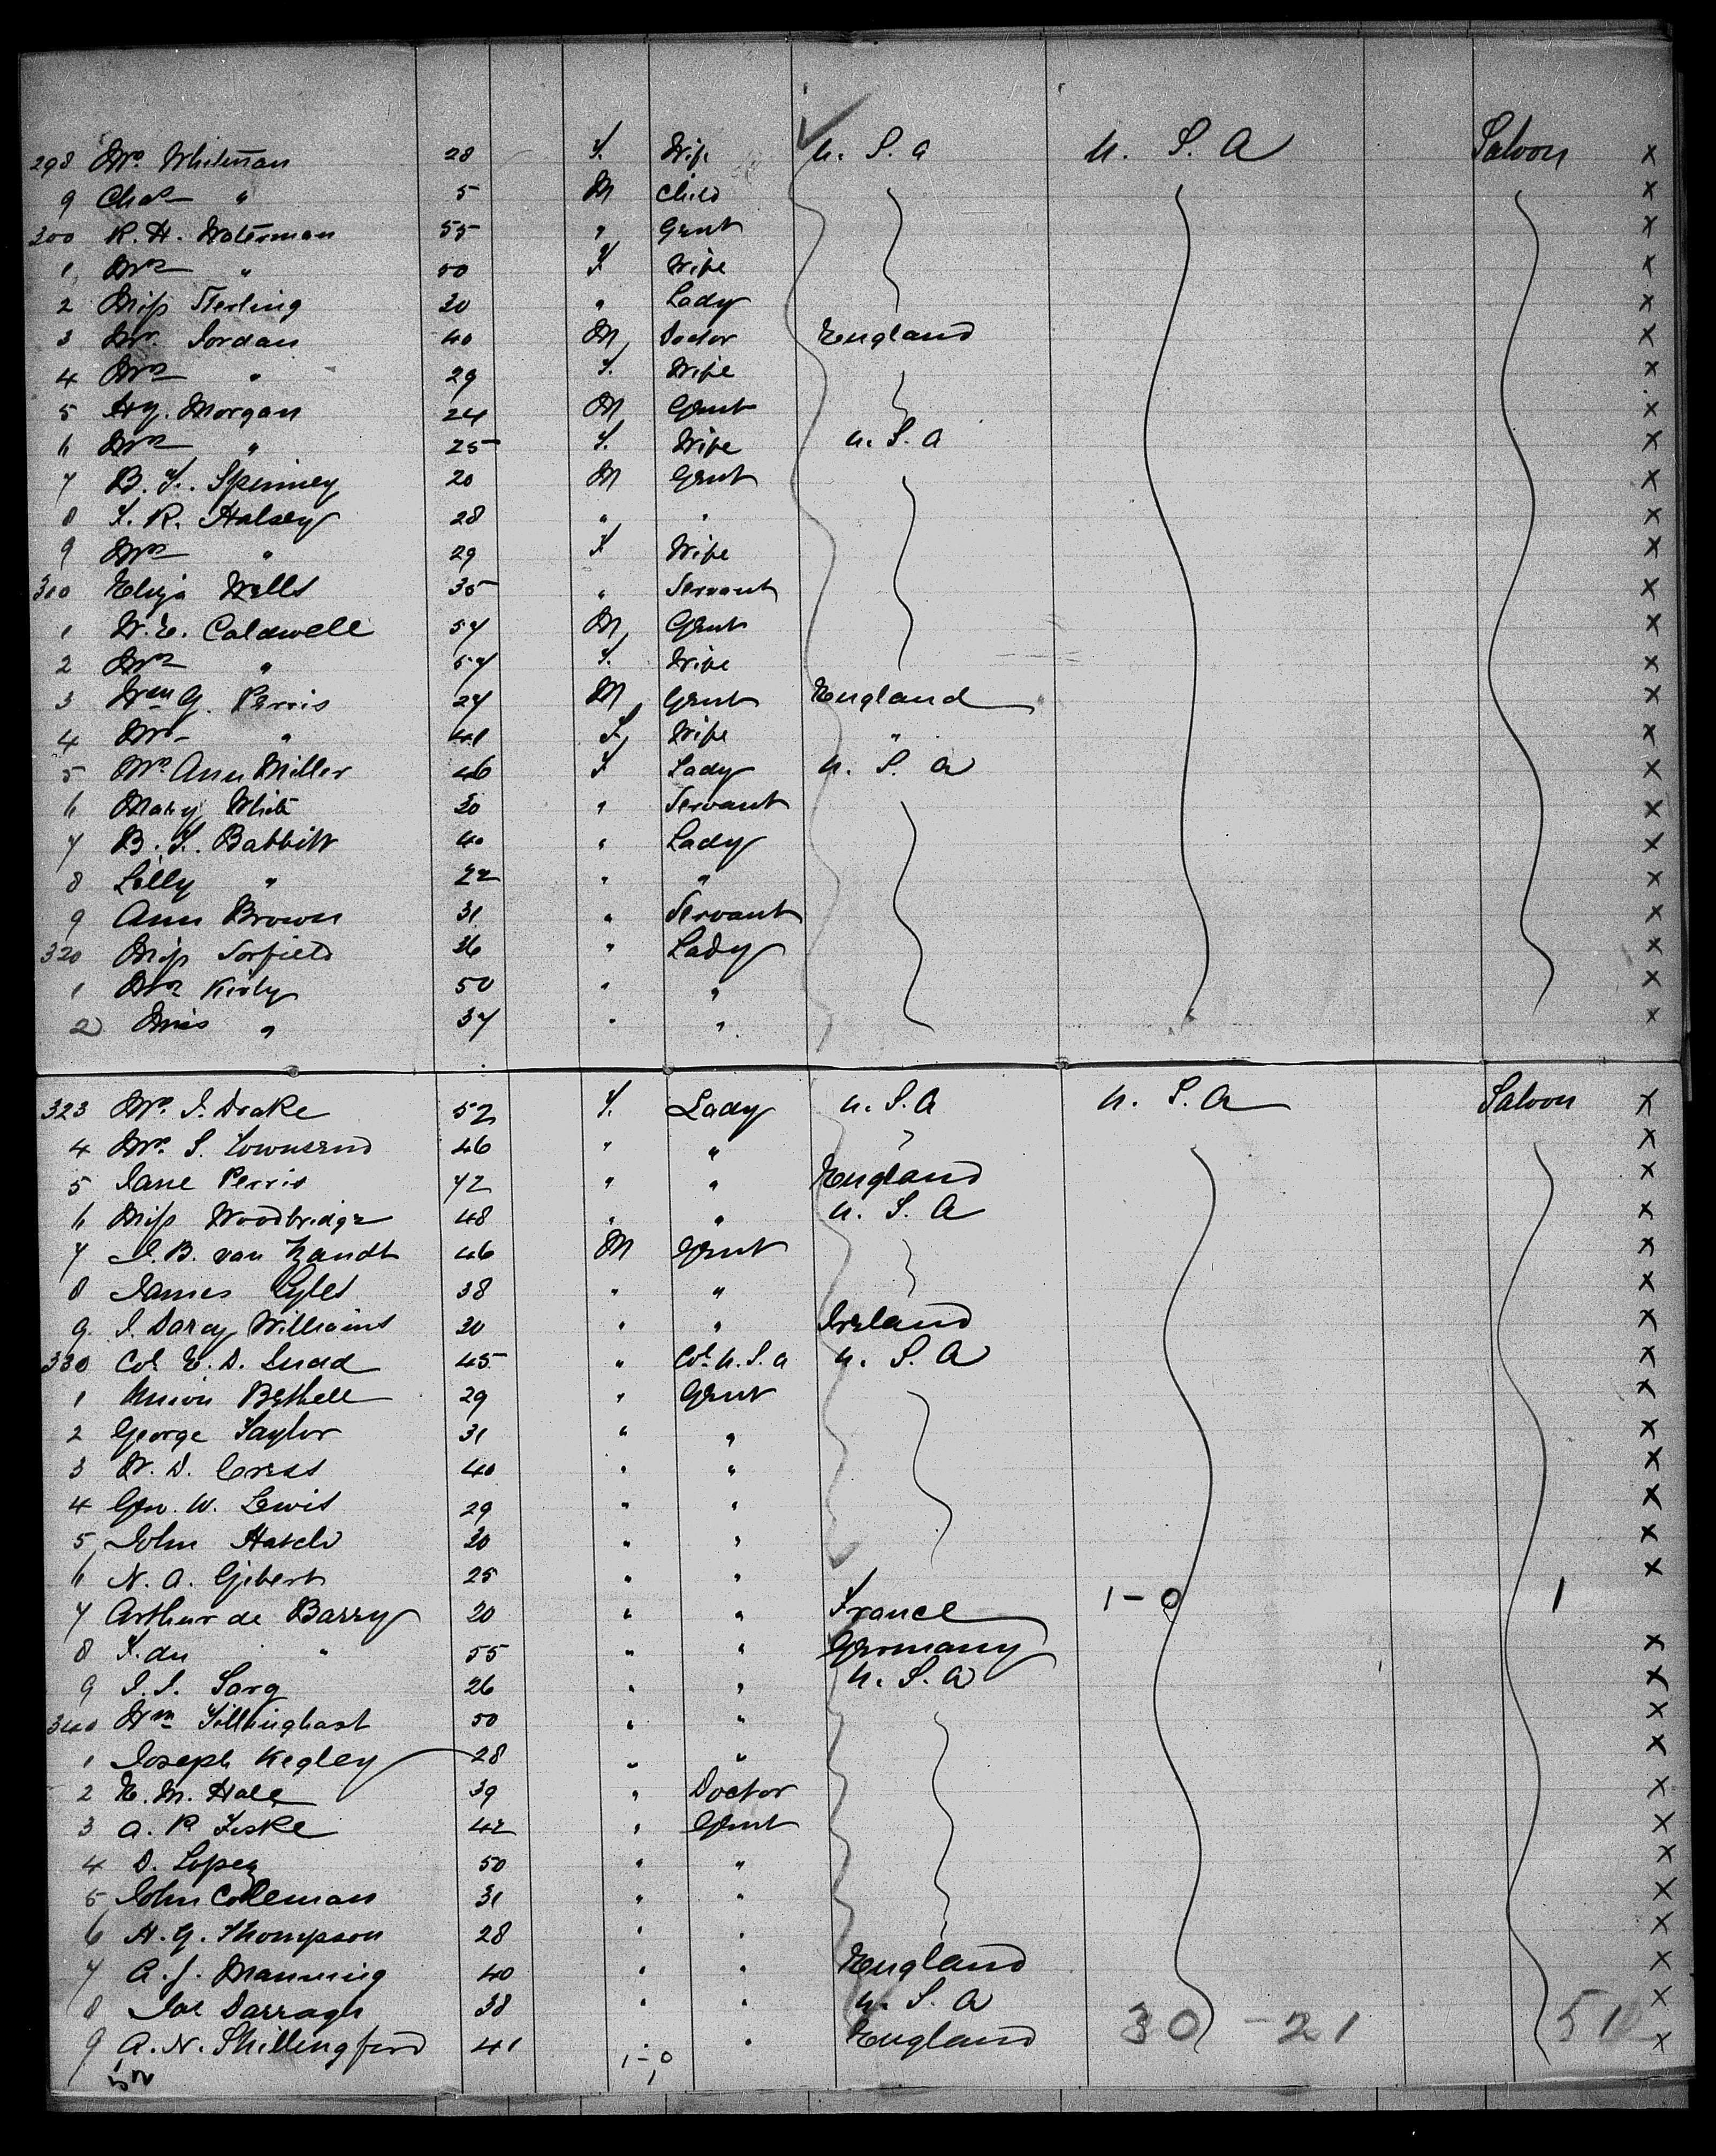 298 Mrs. Whitman 28 F. Wife U. S. A U. S. A Saloon x
9 Chas " 5 M Child x
300 R. H. Waterman 55 " Gent x
1 Mrs " 50 F Wife x
2 Miss Sterling 30 " Lady x
3 Mr. Jordan 40 M Doctor England x
4 Mrs " 29 F. Wife x
5 Hy. Morgan 24 M Gent x
6 Mrs " 25 F. Wife U. S. A x
7 B. F. Spinney 20 M Gent x
8 F. R. Halsey 28 " " x
9 Mrs " 29 F Wife x
310 Eliza Wells 35 " Servant x
1 W. E. Caldwell 57 M Gent x
2 Mrs " 57 F. Wife x
3 Wm G. Perris 27 M Gent England x
4 Mrs " 41 F Wife " x
5 Mrs. Ann Miller 46 F Lady U. S. A x
6 Mary White 30 " Servant x
7 B. F. Babbitt 40 " Lady x
8 Lilly " 22 " " x
9 Ann Brown 31 " Servant x
320 Miss 36 " Lady x
1 Mrs Kirby 50 " " x
2 Miss " 37 " " x
323 Mrs. J. Drake 52 F. Lady U. S. A U. S. A Saloon x
4 Mrs. S. Townsend 46 " " x
5 Jane Perris 72 " " England x
6 Miss Woodbridge 48 " " U. S. A x
7 J. B. van Zandt 46 M Gent x
8 James Lyles 38 " " x
9. J. Darcy Williams 30 " " Ireland x
330 Col E. D. Judd 45 " Col. U. S. A U. S. A x
1 Union Bethell 29 " Gent x
2 George Taylor 31 " " x
3 W. D. Cress 40 " " x
4 Geo. W. Lewis 29 " " x
5 John Hatch 30 " " x
6 N. A. Gibert 25 " " x
7 Arthur de Barry 20 " " France 1-0 1
8 F. du " 55 " " Germany x
9 J. J. Sarg 26 " " U. S. A x
340 Wm Tillinghast 50 " " x
1 Joseph Kegley 28 " " x
2 E. M. Hale 39 " Doctor x
3 A. R Fiske 42 " Gent x
4 D. Lopez 50 " " x
5 John Coleman 31 " " x
6 H. G. Thompson 28 " " x
7 A. J. Manning 40 " " England x
8 Jas Darragh 38 " " U. S. A x
9 A. N. Shillingford 41 " " England 30 - 21 51 x
1-0
1